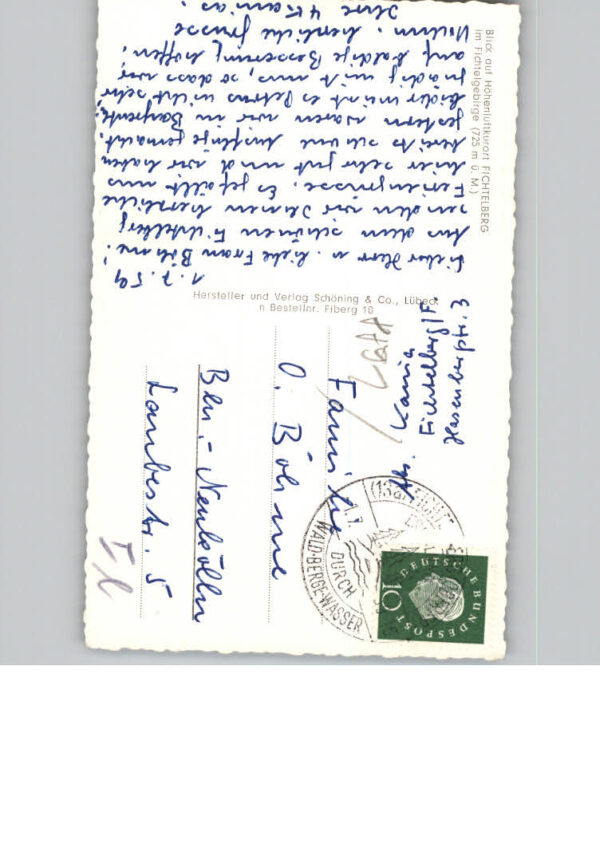 Blick auf Höhenluftkurort FICHTELBERG
im Fichtelgebirge (725 m ü. M.)
1.7.59
Lieber Herr u. liebe Frau Böhme!
Aus dem schönen Fichtelberg
senden wir Ihnen herzliche
Feriengrüsse. Es gefällt uns
hier sehr gut und wir haben
bereits schöne Ausflüge gemacht.
Gestern waren wir in Bayreuth.
Leider meint es Petrus nicht sehr
gnädig mit uns, so dass wir
auf baldige Besserung hoffen.
herzliche Grüsse
Ihre 4 Kanias.
Hersteller und Verlag Schöning & Co., Lübeck
n Bestellnr. Fiberg 10
Abs. Kania
Fichtelberg/F
Hasenbergstr. 3
Familie
O. Böhme
Bln.-Neukölln
Laubestr. 5
DURCH
WALD·BERGE·WASSER
DEUTSCHE BUNDESPOST
10